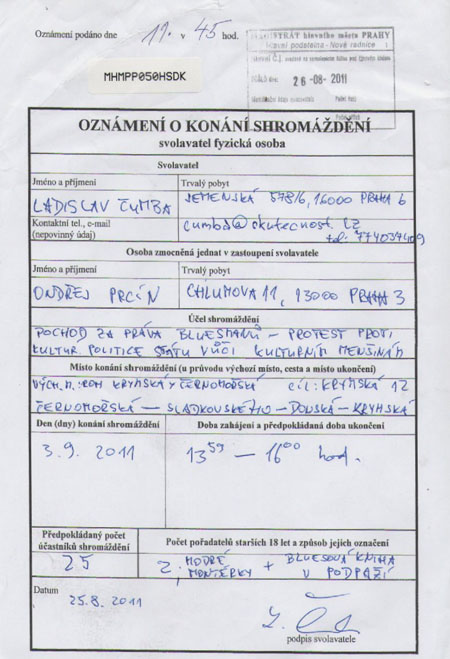 Oznámení podáno dne 11. v 45 hod.
MAGISTRÁT hlavního města PRAHY
Hlavní podatelna - Nová radnice
26 -08- 2011
MHMPP050HSDK
OZNÁMENÍ O KONÁNÍ SHROMÁŽDĚNÍ
svolavatel fyzická osoba
Svolavatel
Jméno a příjmení Trvalý pobyt
LADISLAV ČUMBA JEMENSKÁ 578/6, 16000 PRAHA 6
Kontaktní tel., e-mail
(nepovinný údaj)
cumba@skutecnost.cz
tel: 774037409
Osoba zmocněná jednat v zastoupení svolavatele
Jméno a příjmení Trvalý pobyt
ONDŘEJ PRCÍN CHLUMOVA 11, 13000 PRAHA 3
Účel shromáždění
POCHOD ZA PRÁVA BLUESMANŮ – PROTEST PROTI
KULTUR. POLITICE STÁTU VŮČI KULTURNÍM MENŠINÁM
Místo konání shromáždění (u průvodu výchozí místo, cesta a místo ukončení)
VÝCH. M.: ROH KRYMSKÁ X ČERNOMOŘSKÁ CÍL: KRYMSKÁ 12
ČERNOMOŘSKÁ – SLADKOVSKÉHO – DONSKÁ – KRYMSKÁ
Den (dny) konání shromáždění Doba zahájení a předpokládaná doba ukončení
3. 9. 2011 13 59 – 16 00 hod.
Předpokládaný počet
účastníků shromáždění
Počet pořadatelů starších 18 let a způsob jejich označení
25 2, MODRÉ MONTÉRKY + BLUESOVÁ KNIHA V PODPAŽÍ
Datum
25.8. 2011
podpis svolavatele